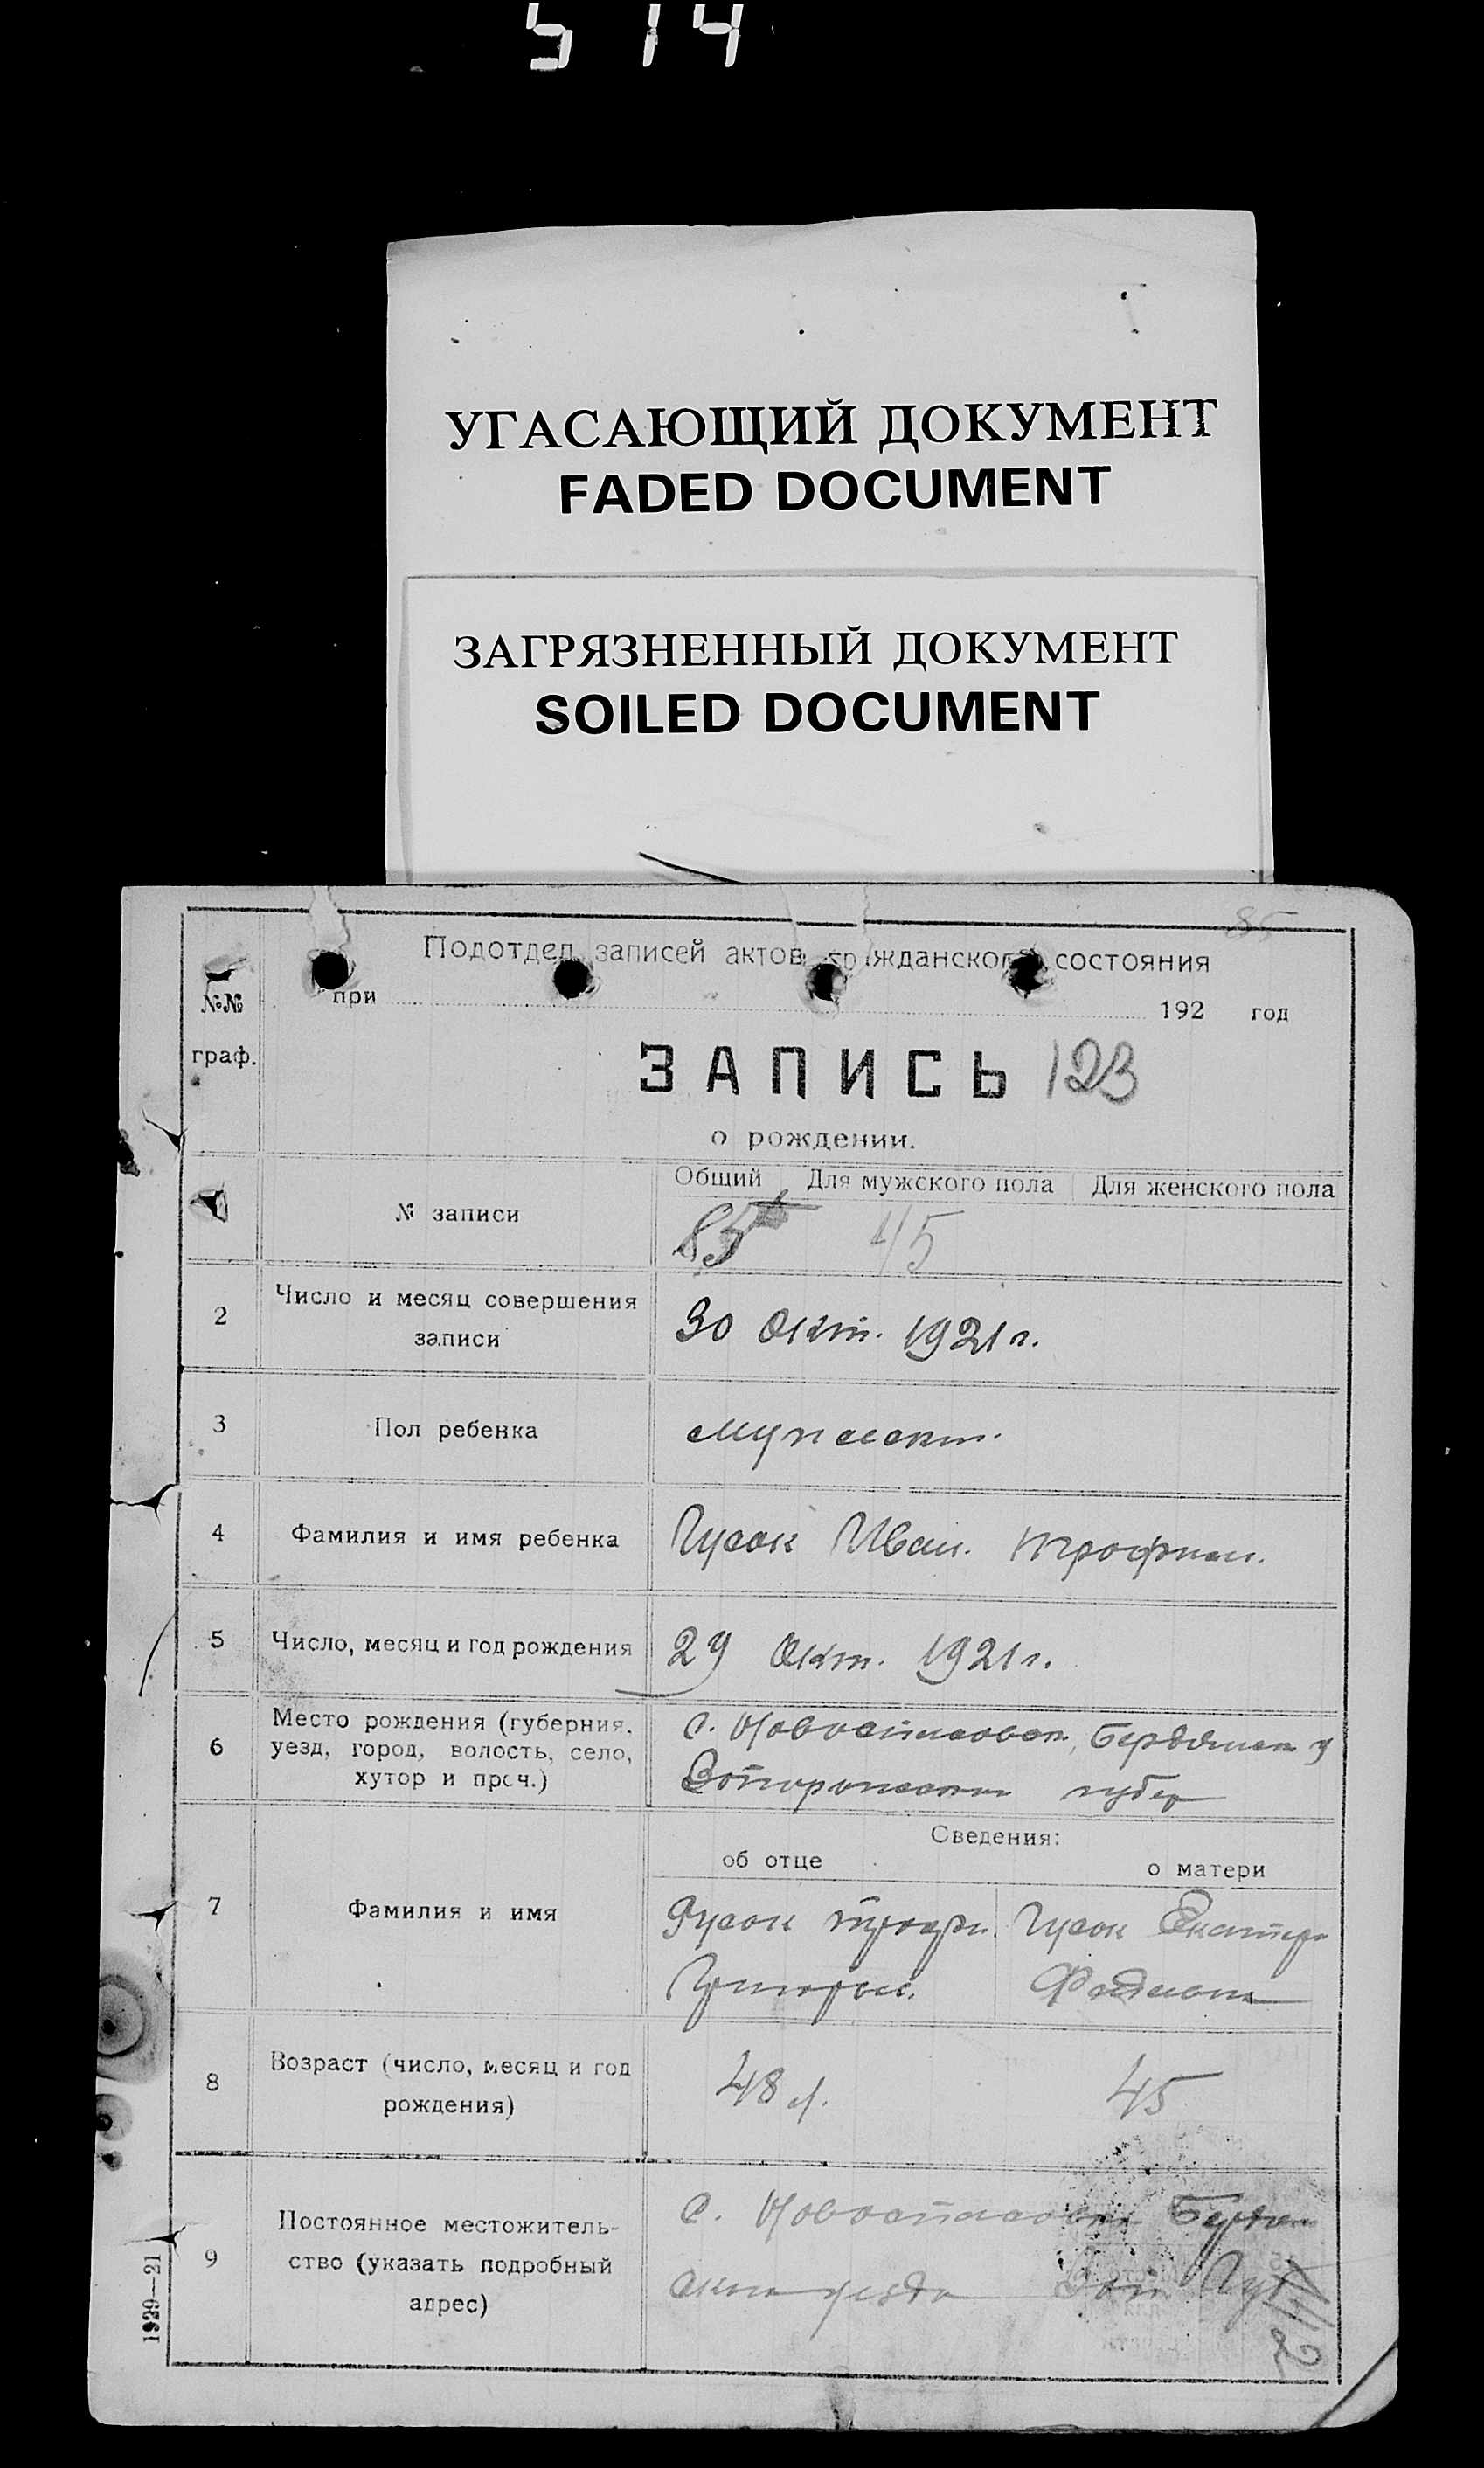 514
УГАСАЮЩИЙ ДОКУМЕНТ
FADED DOCUMENT
ЗАГРЯЗНЕННЫЙ ДОКУМЕНТ
SOILED DOCUMENT
85
Подотдел записей актов гражданского состояния
№№ граф.
при 192 год
ЗАПИСЬ 123
о рождении.
Общий Для мужского пола Для женского пола
№ записи 85 45
2 Число и месяц совершения записи 30 Окт. 1921 г.
3 Пол ребенка мужеск.
4 Фамилия и имя ребенка Гусак Иван. Трофим.
5 Число, месяц и год рождения 29 Окт. 1921 г.
6 Место рождения (губерния, уезд, город, волость, село, хутор и проч.)
с. Бердянск у
губер
Сведения:
об отце о матери
7 Фамилия и имя
Гусак Троф. Гусак Екатер
Григорьев.
8 Возраст (число, месяц и год рождения) 48 л. 45
9 Постоянное местожительство (указать подробный адрес)
с. Бердян
ском уезда Зап Губ
1929—21